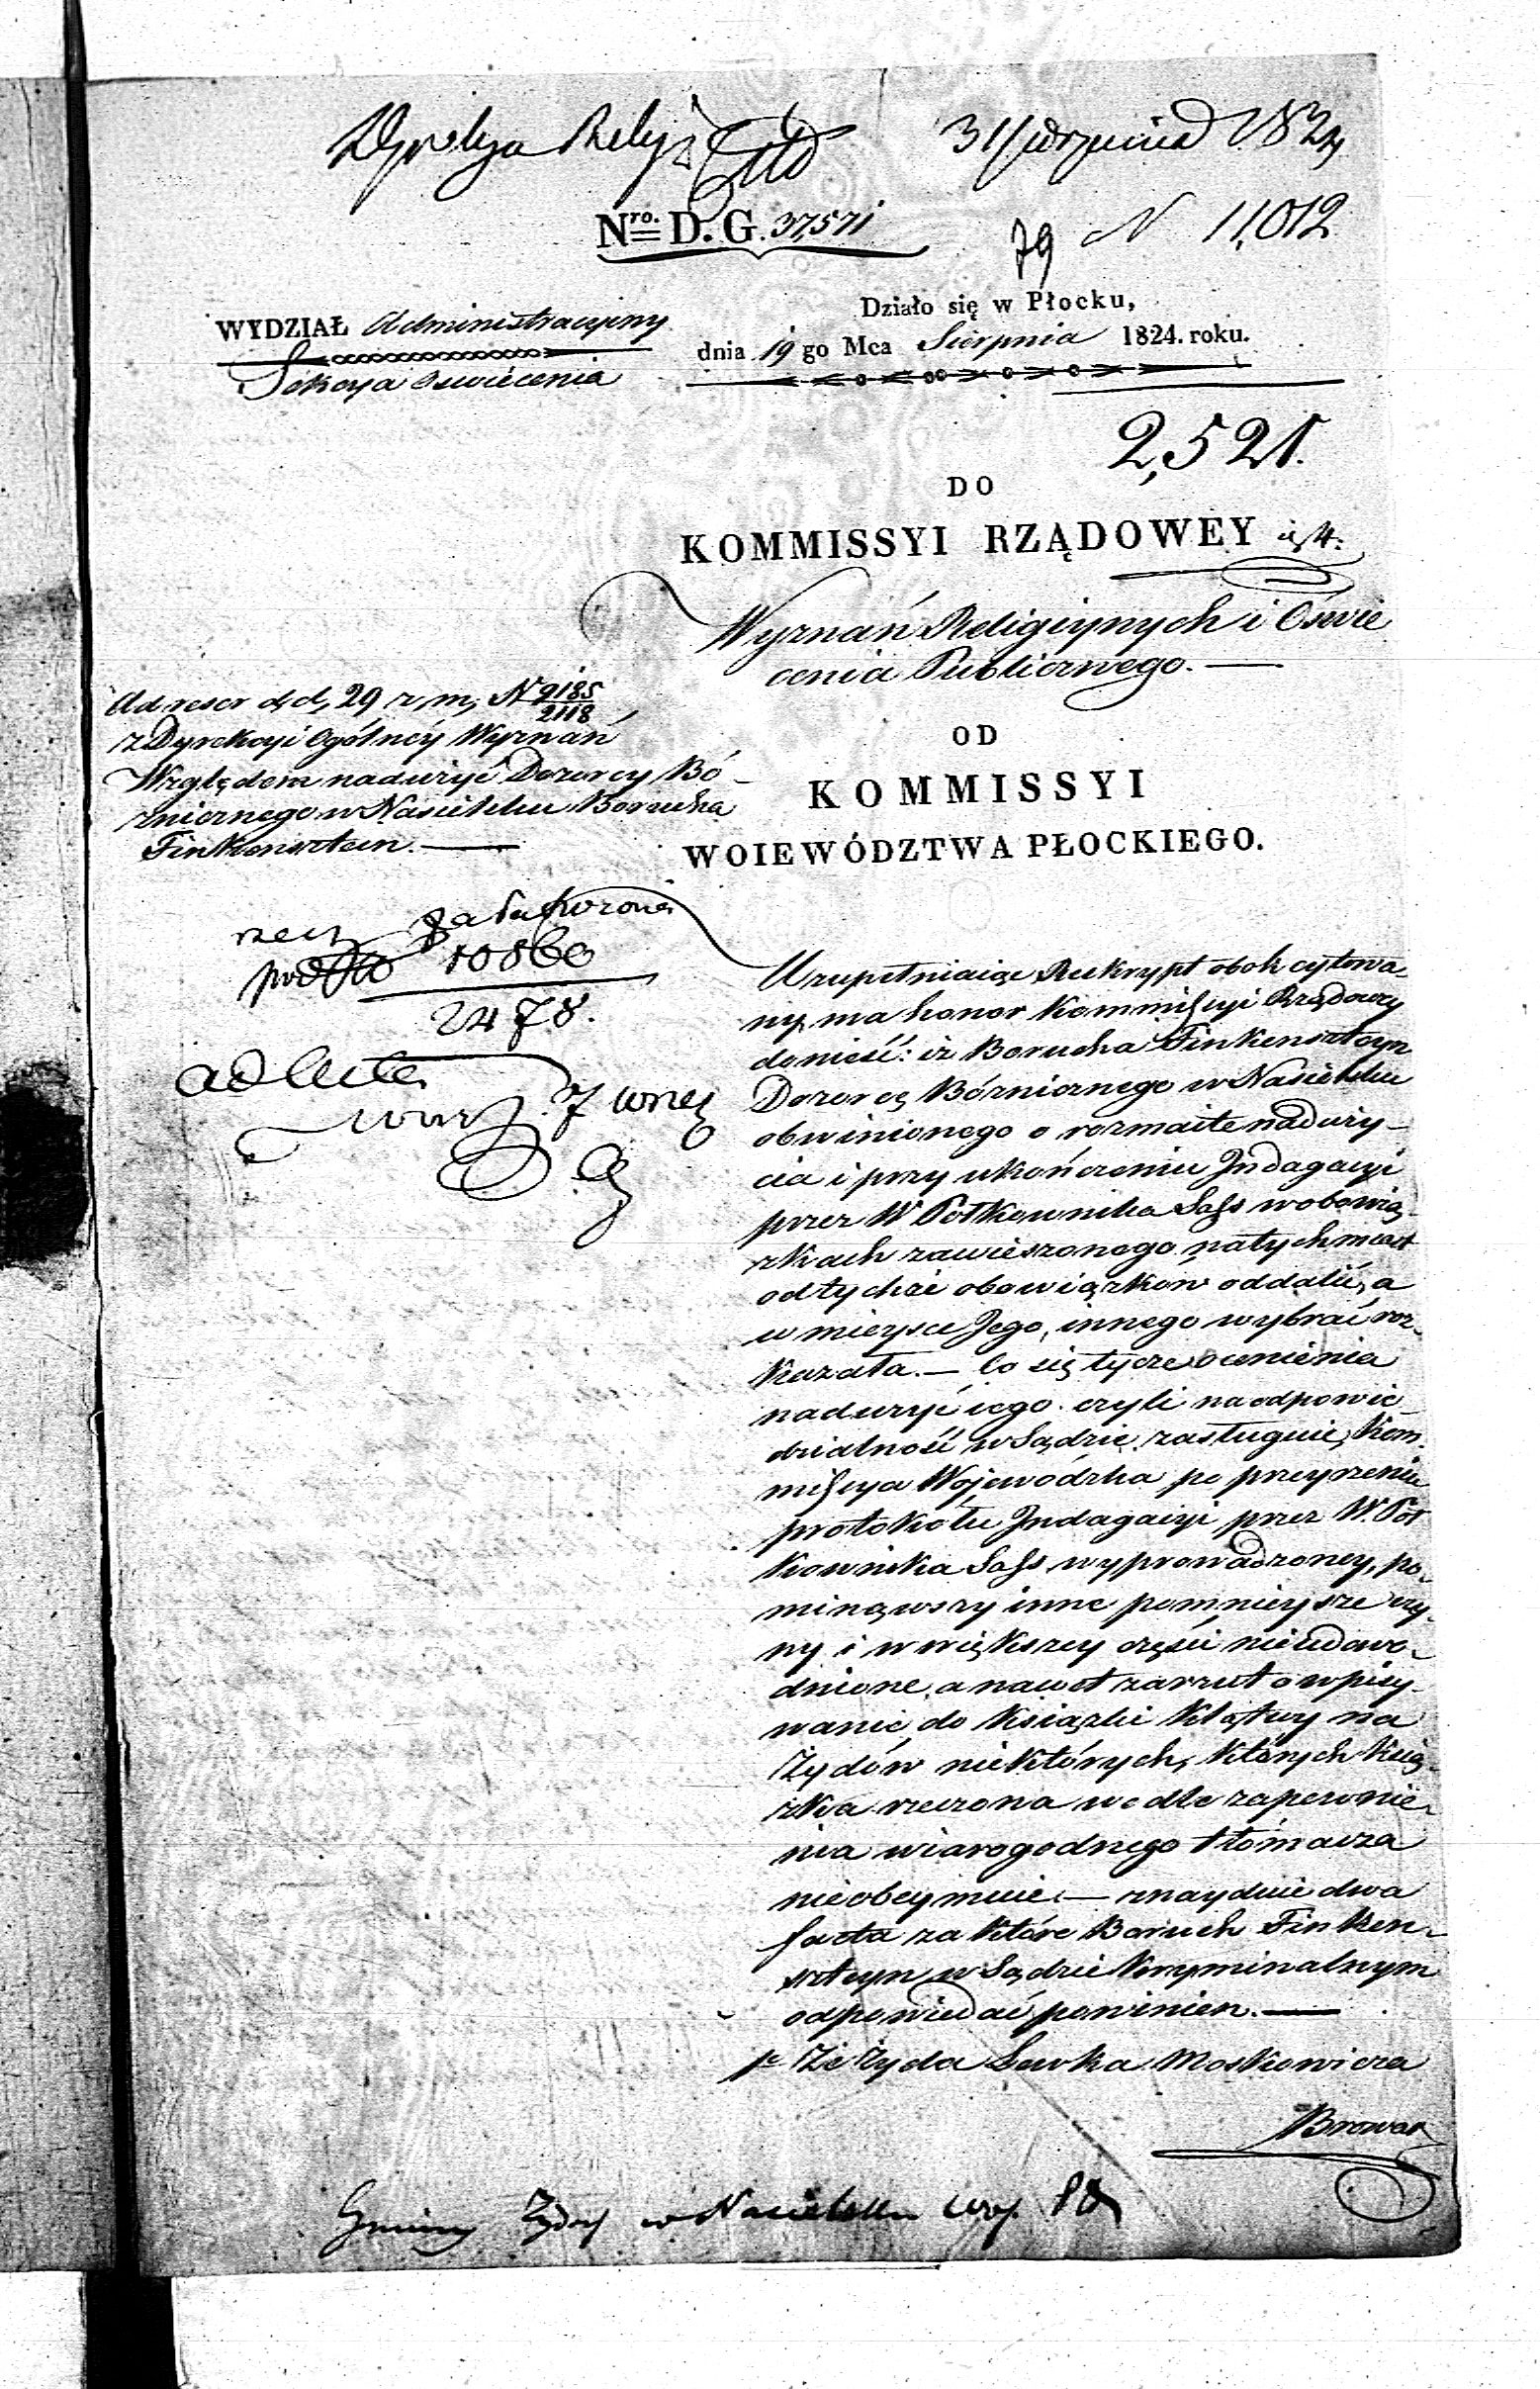 Dyrekcya Religij 31 Sierpnia 1824
Nro. D. G. 37571
79 N 11,012
WYDZIAŁ Administracyiny
Sekcya Oswiecenia
Działo się w Płocku,
dnia 19 go Mca Sierpnia 1824. roku.
2,521.
DO
KOMMISSYI RZĄDOWEY
Wyznań Religiynych i Oświe
cenia Publicznego. —
Ad rescr d, d, 29 z, m, N 9185/2118
z Dyrekcyi Ogólnéy Wyznań
Względem nadużyć Dozorcy Bó-
żnicznego w Nasielsku Borucha
Finkensztein. —
OD
KOMMISSYI
WOIEWÓDZTWA PŁOCKIEGO.
rzecz załatwiona
pod No 10860
2478.
ad acta
Uzupełniaiąc Reskrypt obok cytowa-
ny, ma honor Kommissyi Rządowey
donieść: iż Borucha Finkenszteyn
Dozorcę Bóżnicznego w Nasielsku
obwinionego o rozmaite naduży-
cia i przy ukończeniu Indagacyi
przez W Półkownika Sass w obowią-
zkach zawieszonego, natychmiast
od tychże obowiązkow oddalić, a
w mieysce Jego, innego wybrać roz-
kazała. — Co się tycze ocenienia
nadużyć iego. czyli na odpowie-
dzialność w Sądzie zasługuie, Kom-
missya Wojewódzka po przeyrzeniu
protokołu Indagacyi przez W. Pół
kownika Sass wyprowadzoney, po-
minąwszy inne pomnieysze czy-
ny i w większey części nieudowo-
dnione, a nawet zarzut o wpisy-
wanie do Książki klątwy na
Żydów niektórych, których Ksią-
żka rzeczona wedle zapewnie-
nia wiarogodnego tłómacza
nieobeymuie, — znayduie dwa
facta za które Baruch Finken-
szteyn w Sądzie Kryminalnym
odpowiedać powinien. —
1e Że Żyda Lewka Moskowicza
Browar
Gminy Żydow w Nasielsku